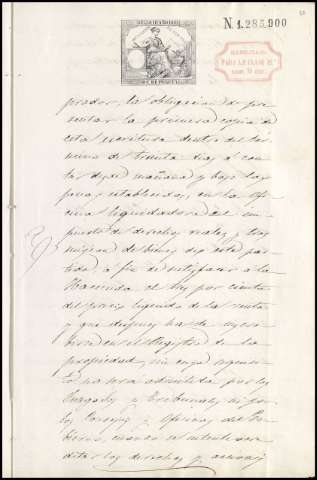 N.1.285.900
HABILITADO
PARA LA CLASE 11ª
prador, la obligacion de pre-
sentar la primera copia de
esta escritura dentro del tér-
mino de treinta dias, al con-
tar desde mañana y bajo las
penas establecidas, en la ofi-
cina liquidadora del im-
puesto de derechos reales y tras-
mision de bienes de este par-
tido, á fin de satisfacer á la
Hacienda el tres por ciento
del precio líquido de la venta
y que despues ha de inscri-
birse en el Registro de la
propiedad, sin cuyo requisi-
to no será admitida por los
Juzgados y Tribunales ni por
los Consejos y Oficinas del Go-
bierno, cuando se intente acre-
ditar los derechos y acciones